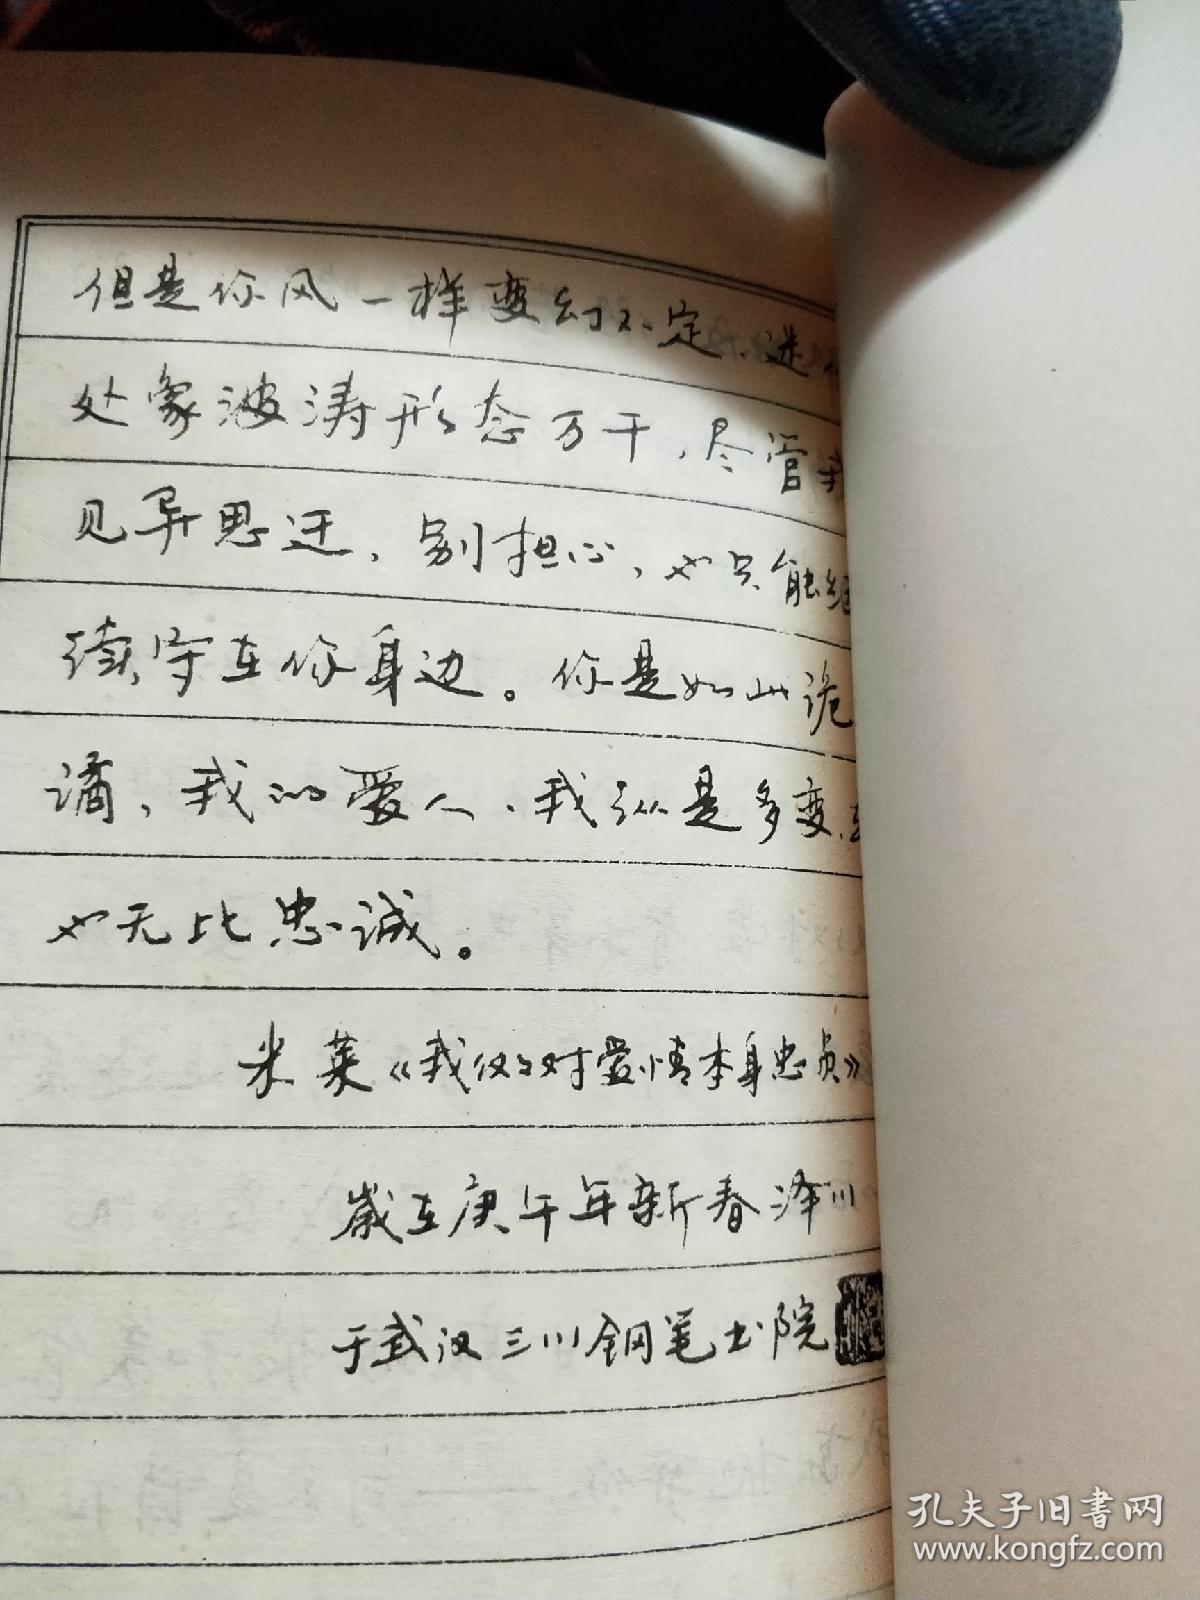 但是你风一样变幻不定、迷
处象波涛形态万千，尽管我
见异思迁、别担心，也只能继
续守在你身边。你是如此诡
谲、我的爱人、我纵是多变、
也无比忠诚。
米莱《我仅对爱情本身忠贞》
岁在庚午年新春泽川
于武汉三川钢笔书院
孔夫子旧书网
www.kongfz.com